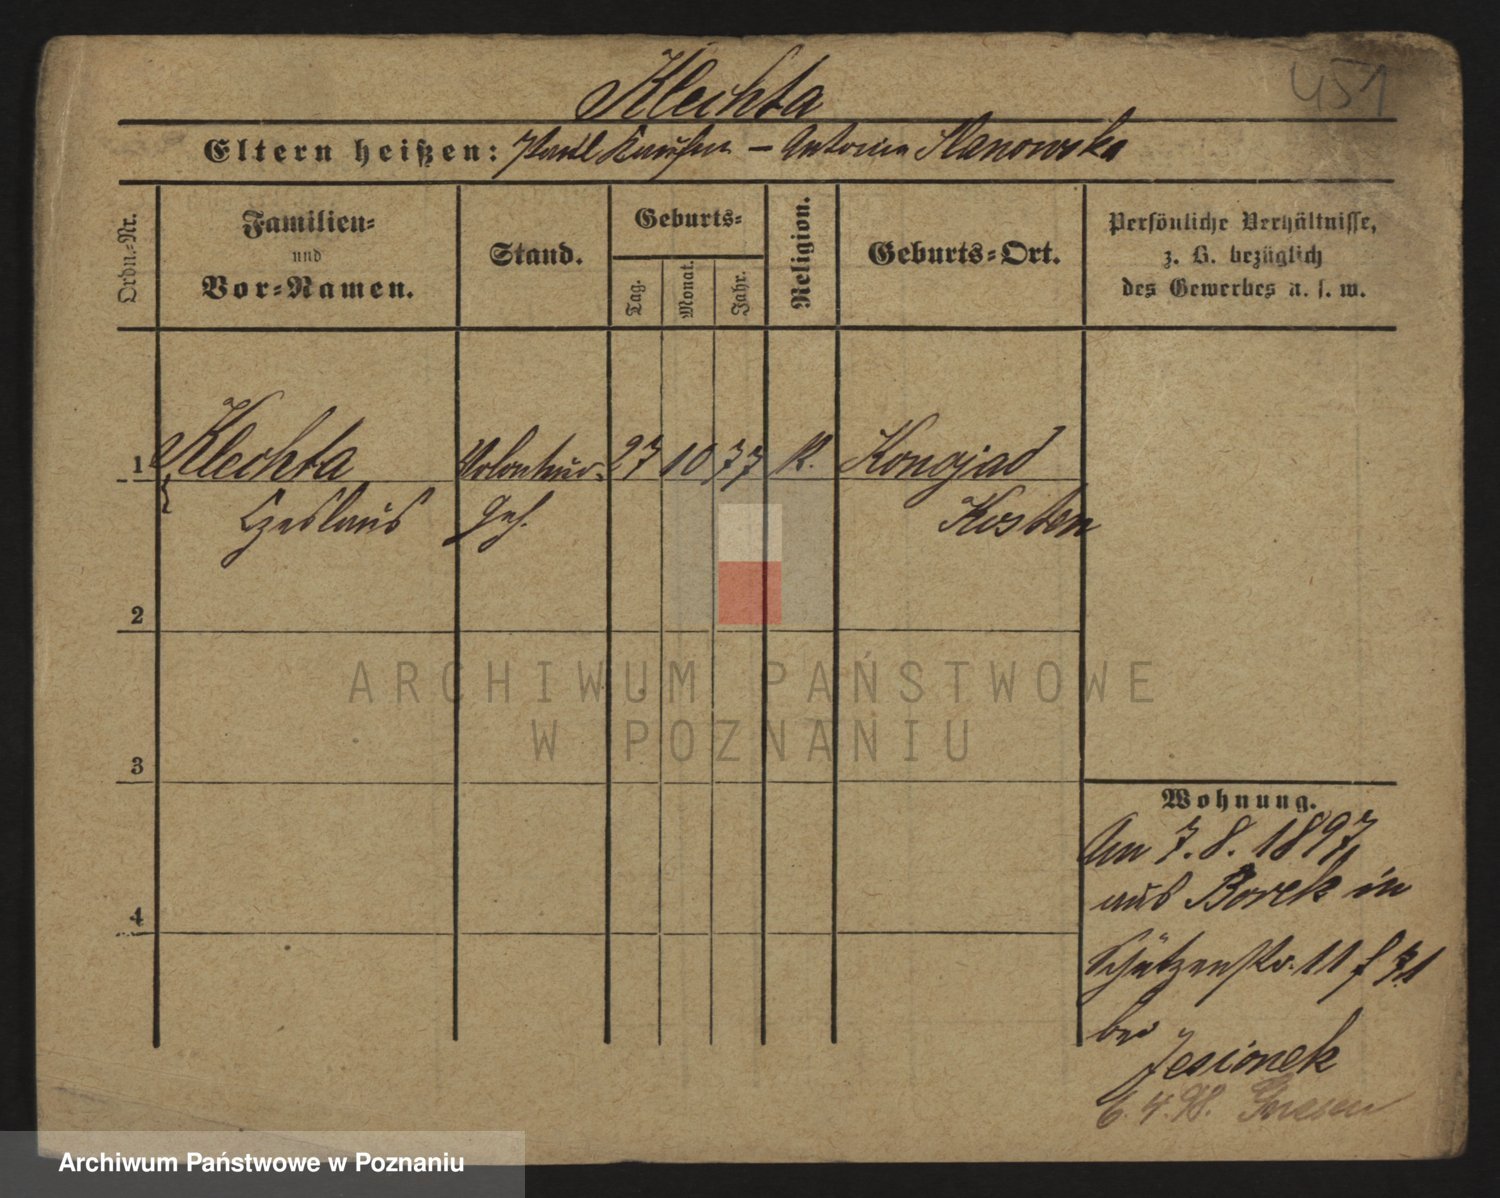 451
Klechta
Eltern heißen: Kaufm – Antonia Stanowska
Ordn.-Nr.
Familien-
und
Vor-Namen.
Stand.
Geburts-
Tag.
Monat.
Jahr.
Religion.
Geburts-Ort.
Persönliche Verhältnisse,
z. B. bezüglich
des Gewerbes u. s. w.
1 Klechta 27 10 77 K. Konojad
Czeslaus Kosten
2
3
4
ARCHIWUM PAŃSTWOWE
W POZNANIU
Wohnung.
Am 7.8.1897
aus Borek in
Schützenstr. 11
bei
Jesionek
6.4.98. Gnesen
Archiwum Państwowe w Poznaniu